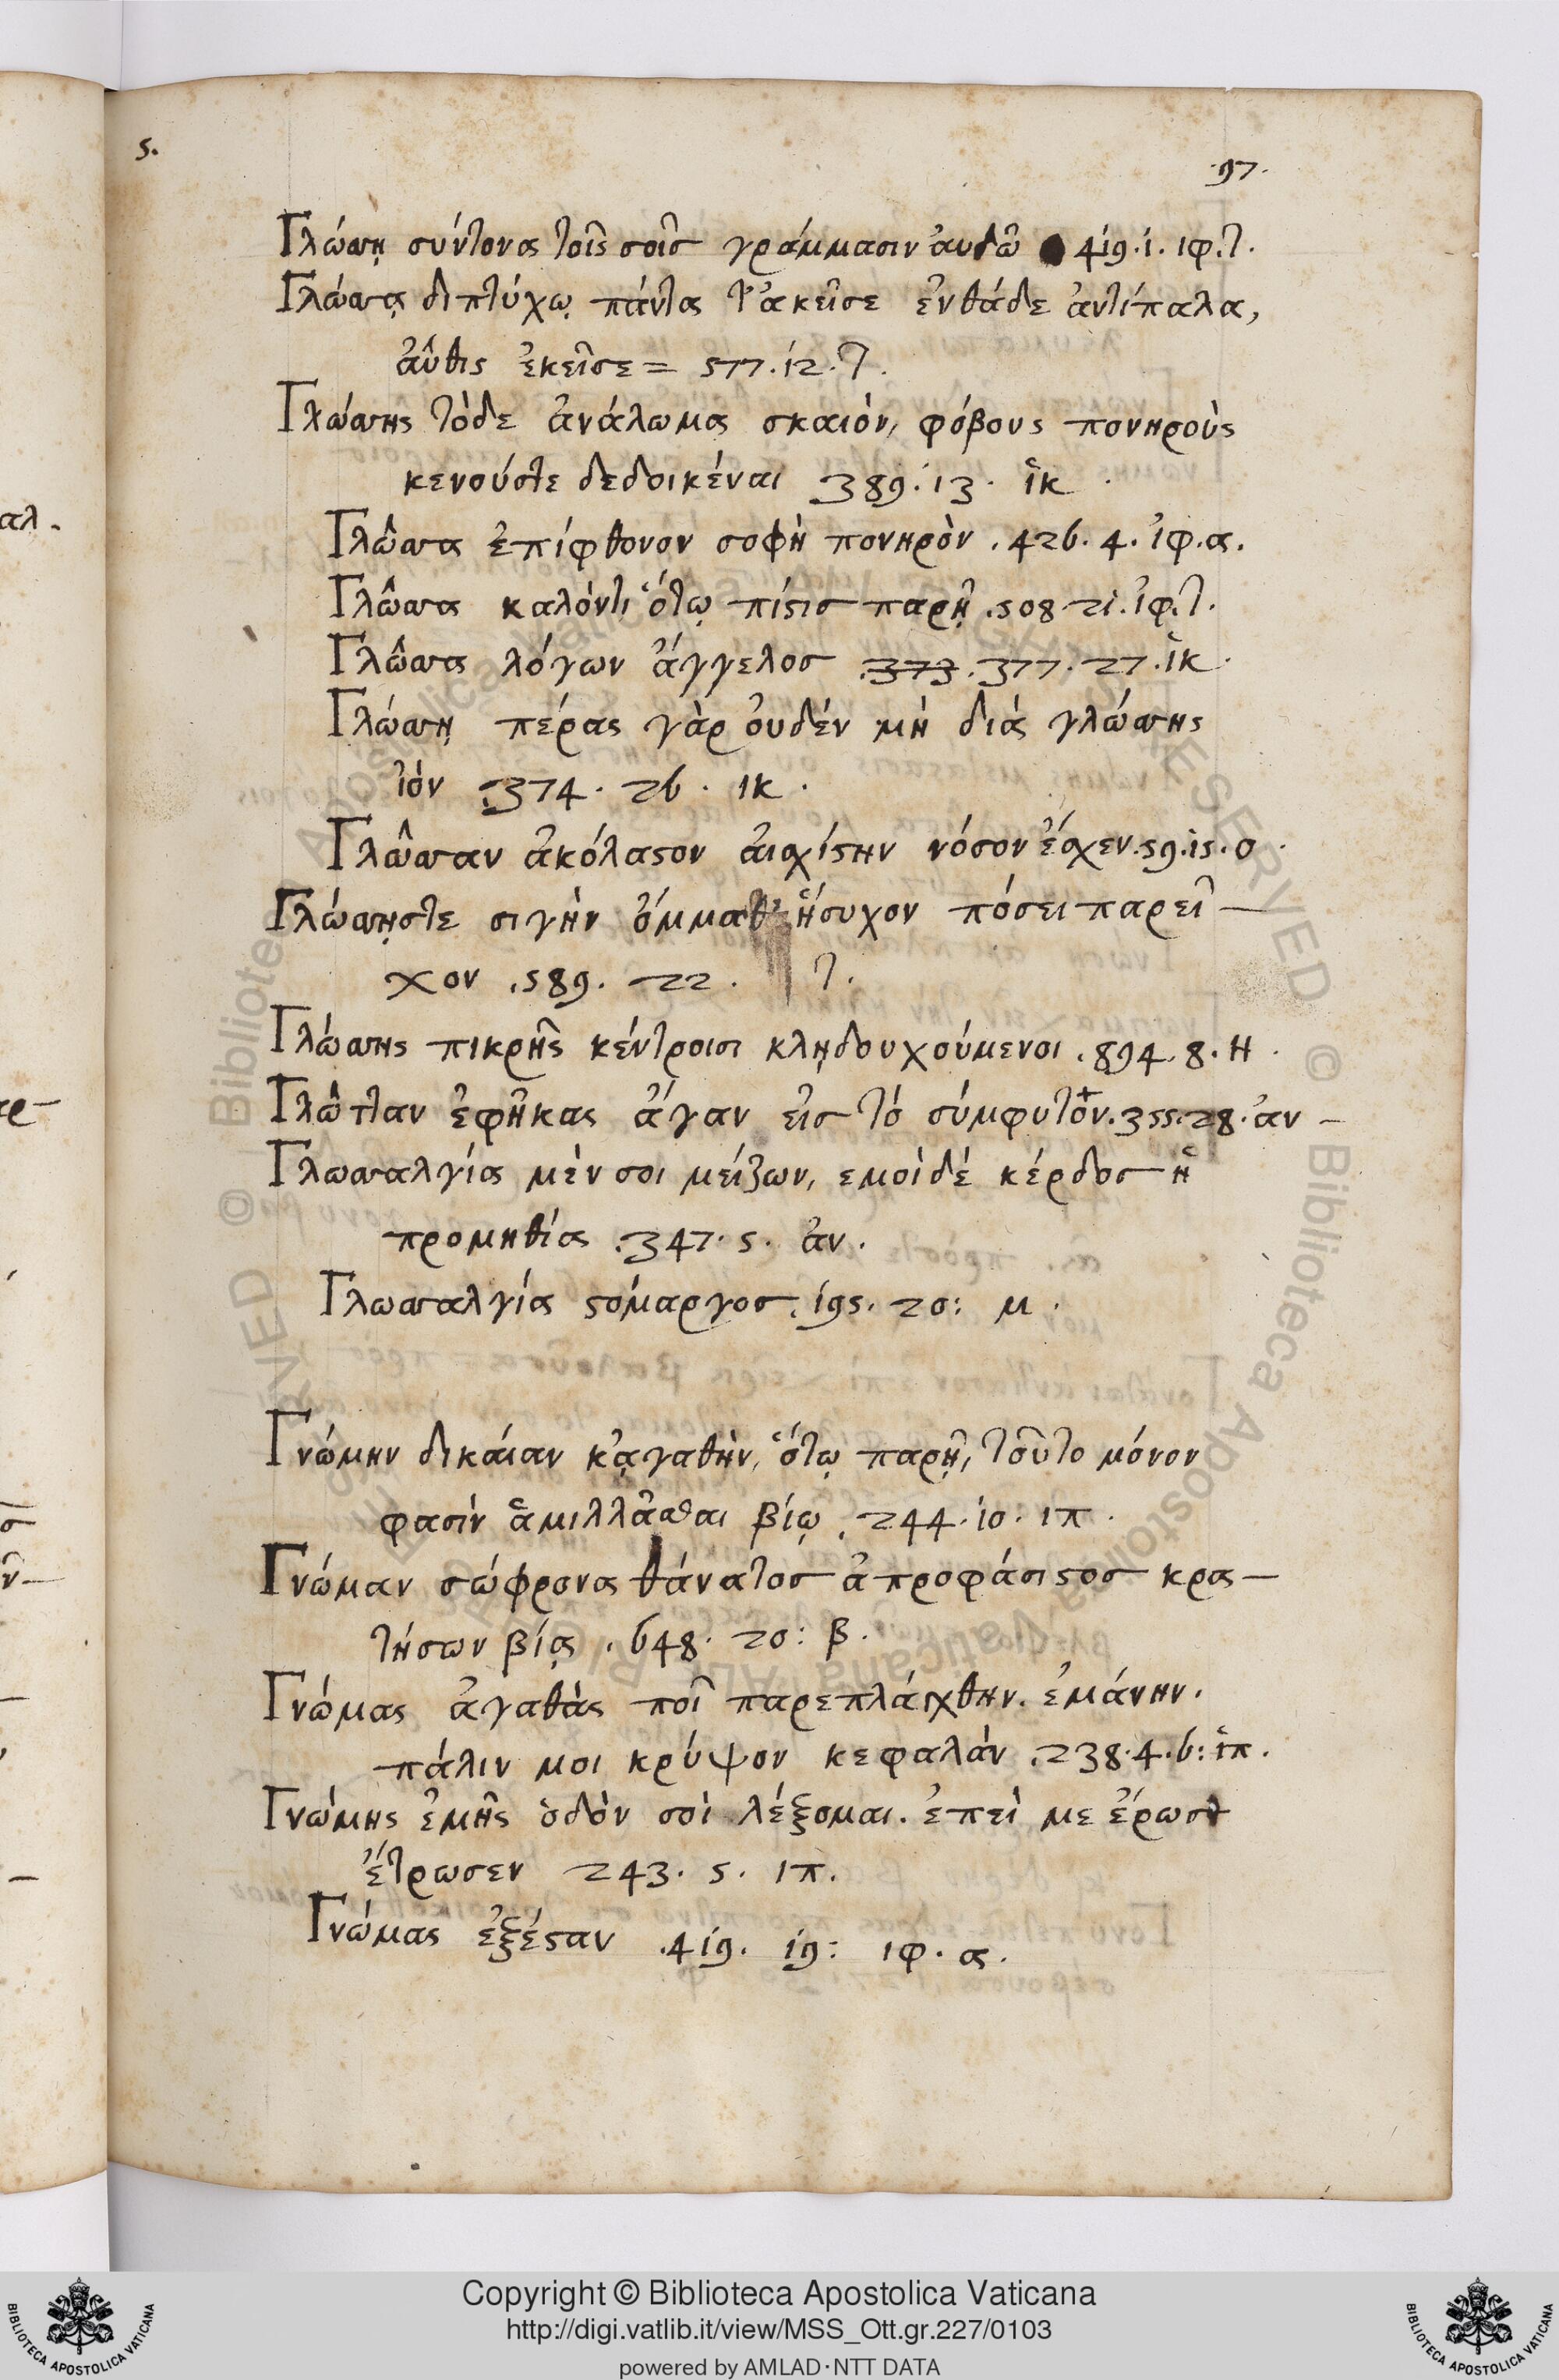 5.
.97.
Γλώσσῃ σύντονα τοῖς σοῖσ γράμμασιν ἀυδῶ 419.1. ιφ.τ.
Γλώσσᾳ διπτύχῳ πάντα τ' ἀκεῖσε ἐνθάδε ἀντίπαλα,
ἀῦθις ἐκεῖσε = 577.12.τ.
Γλώσσης τόδε ἀνάλωμα σκαιὸν, φόβους πονηροὺς
κενούστε δεδοικέναι 389.13. ἱκ.
Γλῶσσα ἐπίφθονον σοφὴ πονηρὸν .426.4. ἰφ.α.
Γλῶσσα καλόντι ὅτῳ πίστισ παρῇ .508.21. ἰφ.τ.
Γλῶσσα λόγων ἄγγελοσ .373. 377.27. ἱκ.
Γλώσσῃ πέρας γὰρ ὀυδέν μὴ διά γλώσσης
ἰόν .374. 26. ικ.
Γλῶσσαν ἀκόλαστον ἀισχίστην νόσον ἔσχεν .59.15. ο.
Γλώσσηστε σιγὴν ὄμμαθ' ἥσυχον πόσει παρεῖ–
χον .589. 22. τ.
Γλώσσης πικρῆς κέντροισι κλῃδουχούμενοι .894.8. Η.
Γλῶτταν ἐφῆκας ἄγαν εἰσ τό σύμφυτον .355.28. ἀν –
Γλωσσαλγία μὲν σοι μείζων, εμοὶ δέ κέρδοσ ἡ
προμηθία .347.5. ἀν.
Γλωσσαλγία στόμαργοσ .195. 20: μ.
Γνώμην δικάιαν κᾀγαθὴν, ὅτῳ παρῇ, τοῦτο μόνον
φασὶν ἁμιλλᾶσθαι βίῳ .244.10: ιπ.
Γνώμαν σώφρονα θάνατοσ ἀπροφάσιστοσ κρα–
τήσων βίᾳ .648. 20: β.
Γνώμας ἀγαθὰς ποῖ παρεπλάγχθην. ἐμάνην.
πάλιν μοι κρύψον κεφαλάν .238.4.6: ἱπ.
Γνώμης ἐμῆς ὁδὸν σοὶ λέξομαι. ἐπεὶ με ἔρωσ
ἔτρωσεν 243. 5. ιπ.
Γνώμας ἐξέσταν .419. 19: ιφ. α.
αλ.
Copyright © Biblioteca Apostolica Vaticana
http://digi.vatlib.it/view/MSS_Ott.gr.227/0103
powered by AMLAD·NTT DATA
BIBLIOTECA APOSTOLICA VATICANA
BIBLIOTECA APOSTOLICA VATICANA